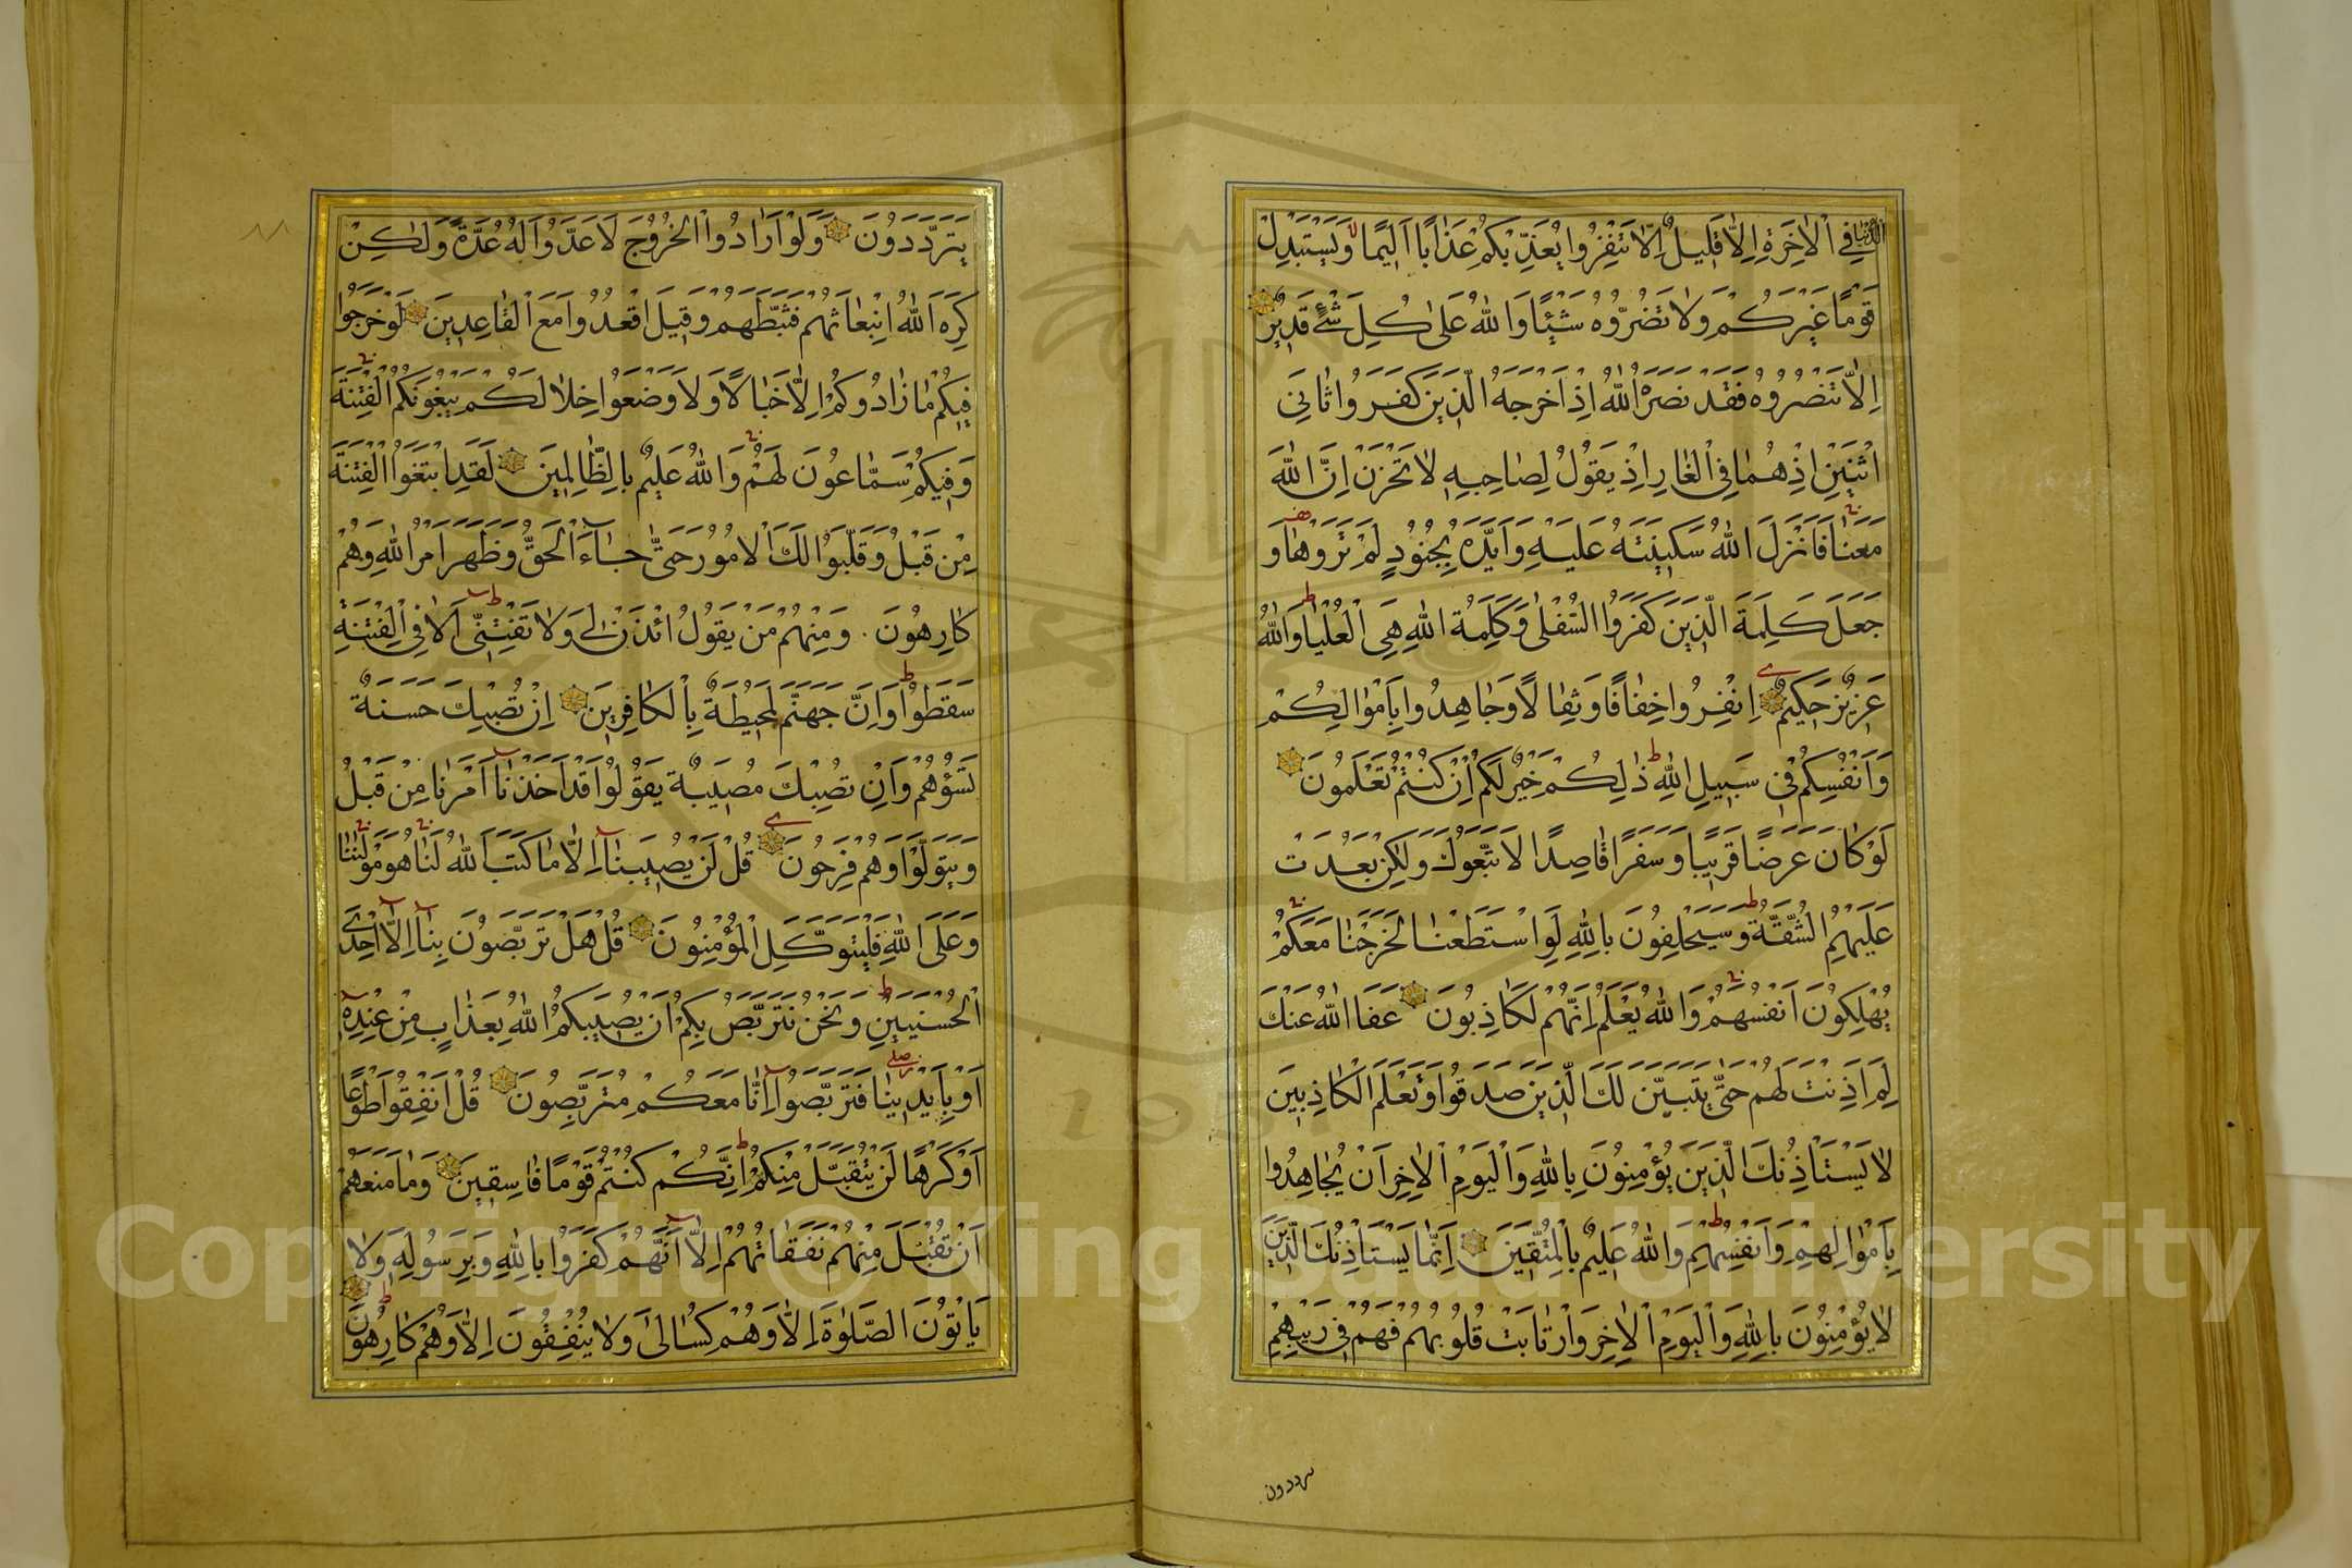 الدُّنْيَا فِي الْاٰخِرَةِ اِلَّا قَلِيلٌ اِلَّا تَنْفِرُوا يُعَذِّبْكُمْ عَذَابًا اَلِيمًا وَيَسْتَبْدِلْ
قَوْمًا غَيْرَكُمْ وَلَا تَضُرُّوهُ شَيْئًا وَاللّٰهُ عَلٰى كُلِّ شَيْءٍ قَدِيرٌ
اِلَّا تَنْصُرُوهُ فَقَدْ نَصَرَهُ اللّٰهُ اِذْ اَخْرَجَهُ الَّذِينَ كَفَرُوا ثَانِيَ
اثْنَيْنِ اِذْ هُمَا فِي الْغَارِ اِذْ يَقُولُ لِصَاحِبِهِ لَا تَحْزَنْ اِنَّ اللّٰهَ
مَعَنَا فَاَنْزَلَ اللّٰهُ سَكِينَتَهُ عَلَيْهِ وَاَيَّدَهُ بِجُنُودٍ لَمْ تَرَوْهَا وَ
جَعَلَ كَلِمَةَ الَّذِينَ كَفَرُوا السُّفْلٰى وَكَلِمَةُ اللّٰهِ هِيَ الْعُلْيَا وَاللّٰهُ
عَزِيزٌ حَكِيمٌ اِنْفِرُوا خِفَافًا وَثِقَالًا وَجَاهِدُوا بِاَمْوَالِكُمْ
وَاَنْفُسِكُمْ فِي سَبِيلِ اللّٰهِ ذٰلِكُمْ خَيْرٌ لَكُمْ اِنْ كُنْتُمْ تَعْلَمُونَ
لَوْ كَانَ عَرَضًا قَرِيبًا وَسَفَرًا قَاصِدًا لَاتَّبَعُوكَ وَلٰكِنْ بَعُدَتْ
عَلَيْهِمُ الشُّقَّةُ وَسَيَحْلِفُونَ بِاللّٰهِ لَوِ اسْتَطَعْنَا لَخَرَجْنَا مَعَكُمْ
يُهْلِكُونَ اَنْفُسَهُمْ وَاللّٰهُ يَعْلَمُ اِنَّهُمْ لَكَاذِبُونَ عَفَا اللّٰهُ عَنْكَ
لِمَ اَذِنْتَ لَهُمْ حَتّٰى يَتَبَيَّنَ لَكَ الَّذِينَ صَدَقُوا وَتَعْلَمَ الْكَاذِبِينَ
لَا يَسْتَاْذِنُكَ الَّذِينَ يُؤْمِنُونَ بِاللّٰهِ وَالْيَوْمِ الْاٰخِرِ اَنْ يُجَاهِدُوا
بِاَمْوَالِهِمْ وَاَنْفُسِهِمْ وَاللّٰهُ عَلِيمٌ بِالْمُتَّقِينَ اِنَّمَا يَسْتَاْذِنُكَ الَّذِينَ
لَا يُؤْمِنُونَ بِاللّٰهِ وَالْيَوْمِ الْاٰخِرِ وَارْتَابَتْ قُلُوبُهُمْ فَهُمْ فِي رَيْبِهِمْ
يترددون
يَتَرَدَّدُونَ وَلَوْ اَرَادُوا الْخُرُوجَ لَاَعَدُّوا لَهُ عُدَّةً وَلٰكِنْ
كَرِهَ اللّٰهُ انْبِعَاثَهُمْ فَثَبَّطَهُمْ وَقِيلَ اقْعُدُوا مَعَ الْقَاعِدِينَ لَوْ خَرَجُوا
فِيكُمْ مَا زَادُوكُمْ اِلَّا خَبَالًا وَلَاَوْضَعُوا خِلَالَكُمْ يَبْغُونَكُمُ الْفِتْنَةَ
وَفِيكُمْ سَمَّاعُونَ لَهُمْ وَاللّٰهُ عَلِيمٌ بِالظَّالِمِينَ لَقَدِ ابْتَغَوُا الْفِتْنَةَ
مِنْ قَبْلُ وَقَلَّبُوا لَكَ الْاُمُورَ حَتّٰى جَاءَ الْحَقُّ وَظَهَرَ اَمْرُ اللّٰهِ وَهُمْ
كَارِهُونَ وَمِنْهُمْ مَنْ يَقُولُ ائْذَنْ لِي وَلَا تَفْتِنِّي اَلَا فِي الْفِتْنَةِ
سَقَطُوا وَاِنَّ جَهَنَّمَ لَمُحِيطَةٌ بِالْكَافِرِينَ اِنْ تُصِبْكَ حَسَنَةٌ
تَسُؤْهُمْ وَاِنْ تُصِبْكَ مُصِيبَةٌ يَقُولُوا قَدْ اَخَذْنَا اَمْرَنَا مِنْ قَبْلُ
وَيَتَوَلَّوْا وَهُمْ فَرِحُونَ قُلْ لَنْ يُصِيبَنَا اِلَّا مَا كَتَبَ اللّٰهُ لَنَا هُوَ مَوْلٰينَا
وَعَلَى اللّٰهِ فَلْيَتَوَكَّلِ الْمُؤْمِنُونَ قُلْ هَلْ تَرَبَّصُونَ بِنَا اِلَّا اِحْدَى
الْحُسْنَيَيْنِ وَنَحْنُ نَتَرَبَّصُ بِكُمْ اَنْ يُصِيبَكُمُ اللّٰهُ بِعَذَابٍ مِنْ عِنْدِهِ
اَوْ بِاَيْدِينَا فَتَرَبَّصُوا اِنَّا مَعَكُمْ مُتَرَبِّصُونَ قُلْ اَنْفِقُوا طَوْعًا
اَوْ كَرْهًا لَنْ يُتَقَبَّلَ مِنْكُمْ اِنَّكُمْ كُنْتُمْ قَوْمًا فَاسِقِينَ وَمَا مَنَعَهُمْ
اَنْ تُقْبَلَ مِنْهُمْ نَفَقَاتُهُمْ اِلَّا اَنَّهُمْ كَفَرُوا بِاللّٰهِ وَبِرَسُولِهِ وَلَا
يَاْتُونَ الصَّلٰوةَ اِلَّا وَهُمْ كُسَالٰى وَلَا يُنْفِقُونَ اِلَّا وَهُمْ كَارِهُونَ
Copyright © King Saud University